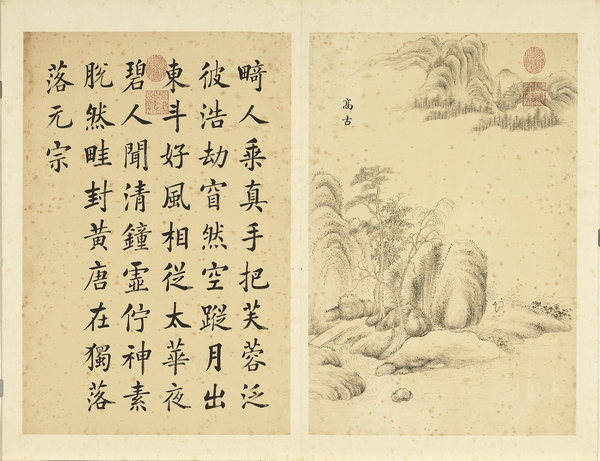 高古
畸人乘真手把芙蓉泛
彼浩劫窅然空蹤月出
東斗好風相從太華夜
碧人聞清鐘虛佇神素
脫然畦封黃唐在獨落
落元宗